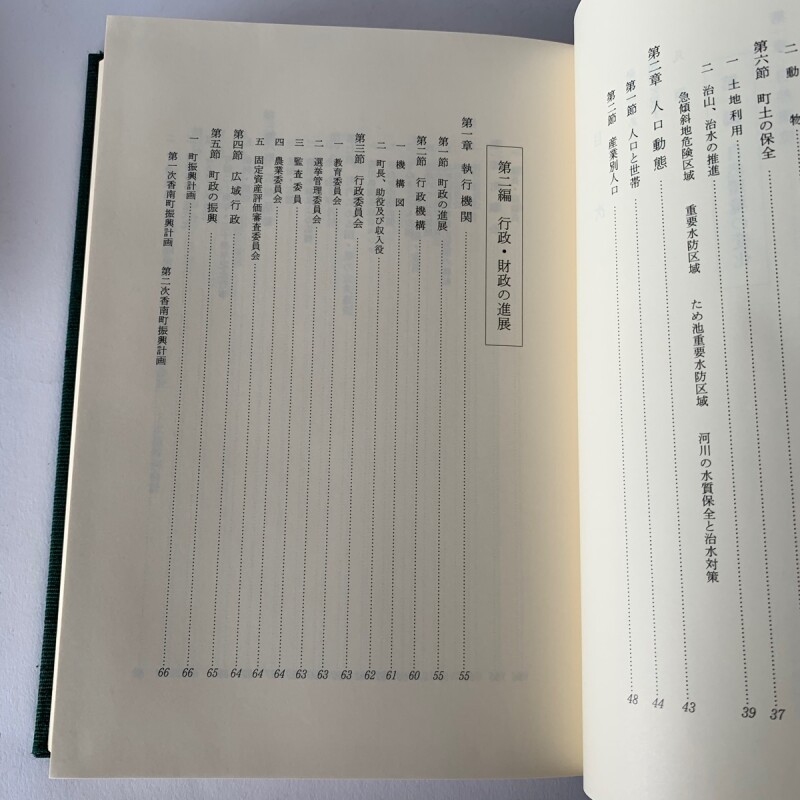 二 動 物
第六節 町土の保全
一 土地利用 37
二 治山、治水の推進 39
急傾斜地危険区域 重要水防区域 ため池重要水防区域 河川の水質保全と治水対策
第二章 人口動態 43
第一節 人口と世帯 44
第二節 産業別人口 48
第二編 行政・財政の進展
第一章 執行機関 55
第一節 町政の進展 55
第二節 行政機構 60
一 機構図 61
二 町長、助役及び収入役 62
第三節 行政委員会 63
一 教育委員会 63
二 選挙管理委員会 63
三 監査委員 64
四 農業委員会 64
五 固定資産評価審査委員会 64
第四節 広域行政 65
第五節 町政の振興 66
一 町振興計画 66
第一次香南町振興計画 第二次香南町振興計画